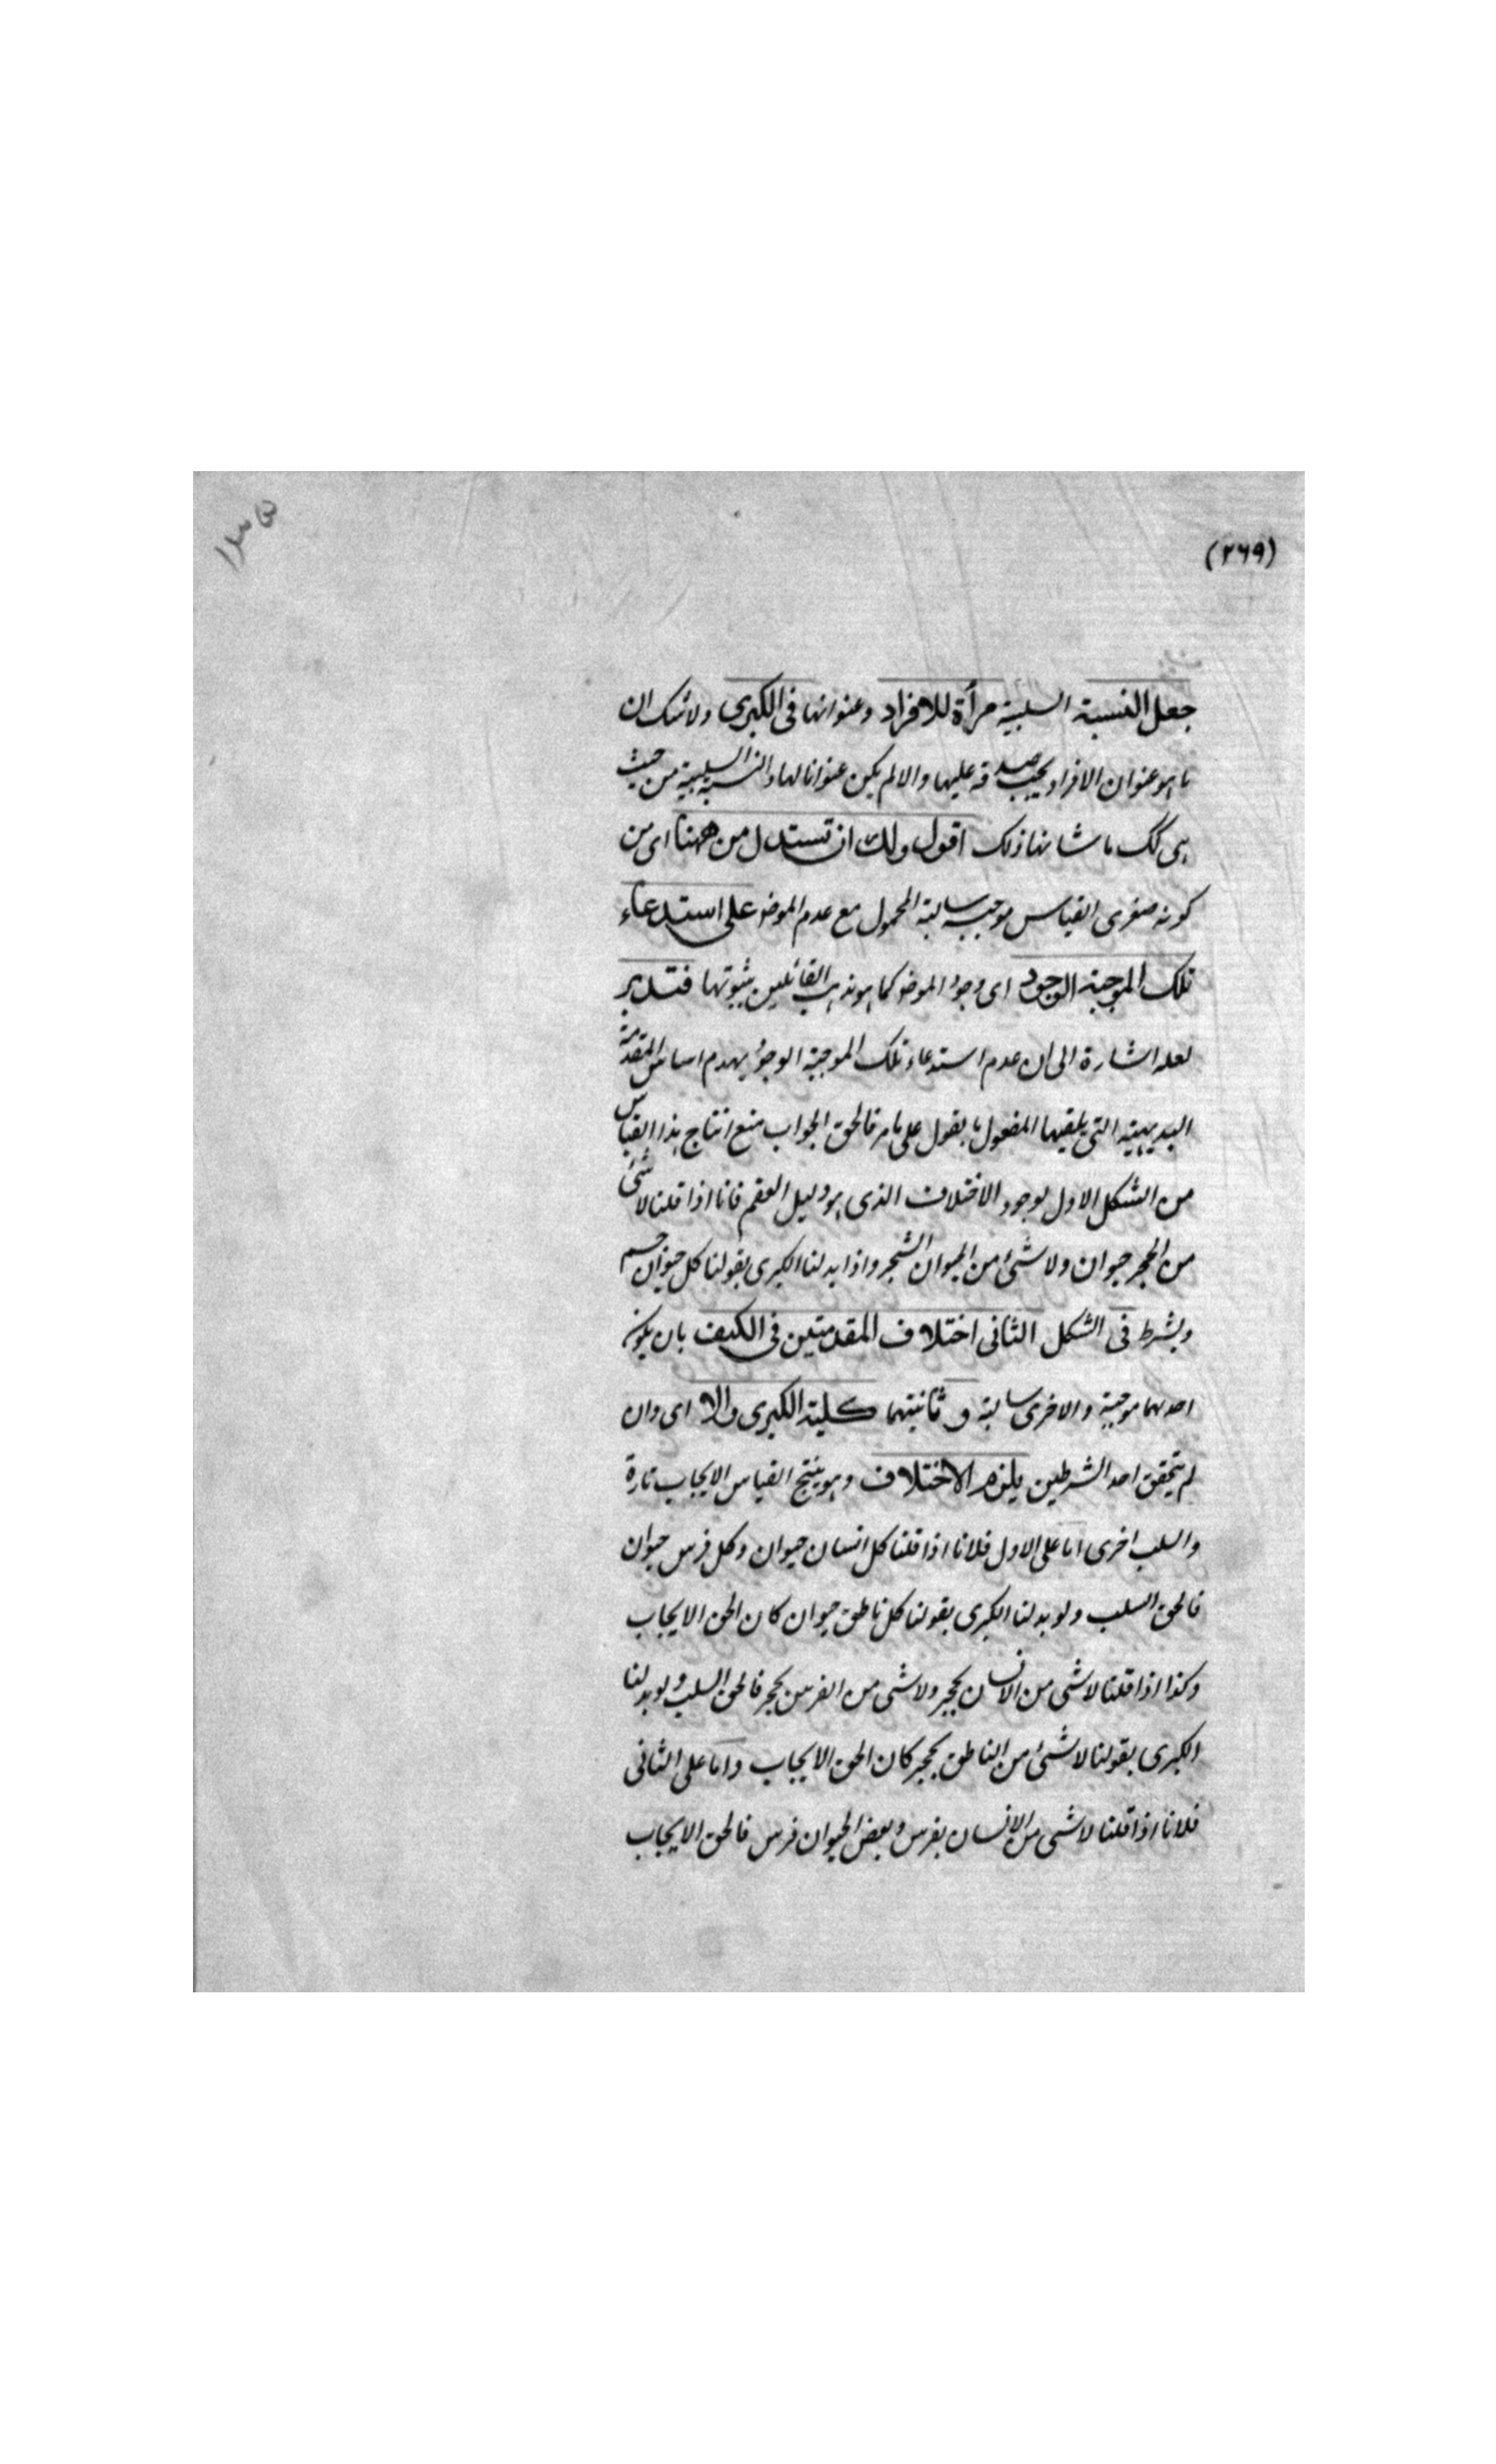 (٢٦٩)
جعل النسبة السلبية مرأة للافراد وعنوانها فى الكبرى ولا شك ان
ما هو عنوان الافراد يجب صدقه عليها والا لم يكن عنوانا لها والنسبة السلبية من حيث
هى كك ما شانها ذلك اقول ولك ان تستدل من ههنا اى من
كونه صغرى القياس موجبة سالبة المحمول مع عدم الموضو على استدعاء
تلك الموجبة الوجود اى وجود الموضو كما هو مذهب القائلين بثبوتها فتدبر
لعله اشارة الى ان عدم استدعاء تلك الموجبة الوجود يهدم اساس المقدمة
البديهية التى يلقيها العقول بالقبول على ما مر فالحق الجواب منع انتاج هذا القياس
من الشكل الاول لوجود الاختلاف الذى هو دليل العقم فانا اذا قلنا لا شئ
من الحجر حيوان ولا شئ من الحيوان الشجر واذا بدلنا الكبرى بقولنا كل حيوان جسم
ويشرط فى الشكل الثانى اختلاف المقدمتين فى الكيف بان يكون
احدهما موجبة والاخرى سالبة و ثانيتهما كلية الكبرى والا اى وان
لم يتحقق احد الشرطين يلزم الاختلاف وهو ينتج القياس الايجاب تارة
والسلب اخرى اما على الاول فلانا اذا قلنا كل انسان حيوان وكل فرس حيوان
فالحق السلب ولو بدلنا الكبرى بقولنا كل ناطق حيوان كان الحق الايجاب
وكذا اذا قلنا لا شئ من الانسان بحجر ولا شئ من الفرس بحجر فالحق السلب ولو بدلنا
الكبرى بقولنا لا شئ من الناطق بحجر كان الحق الايجاب واما على الثانى
فلانا اذا قلنا لا شئ من الانسان بفرس وبعض الحيوان فرس فالحق الايجاب